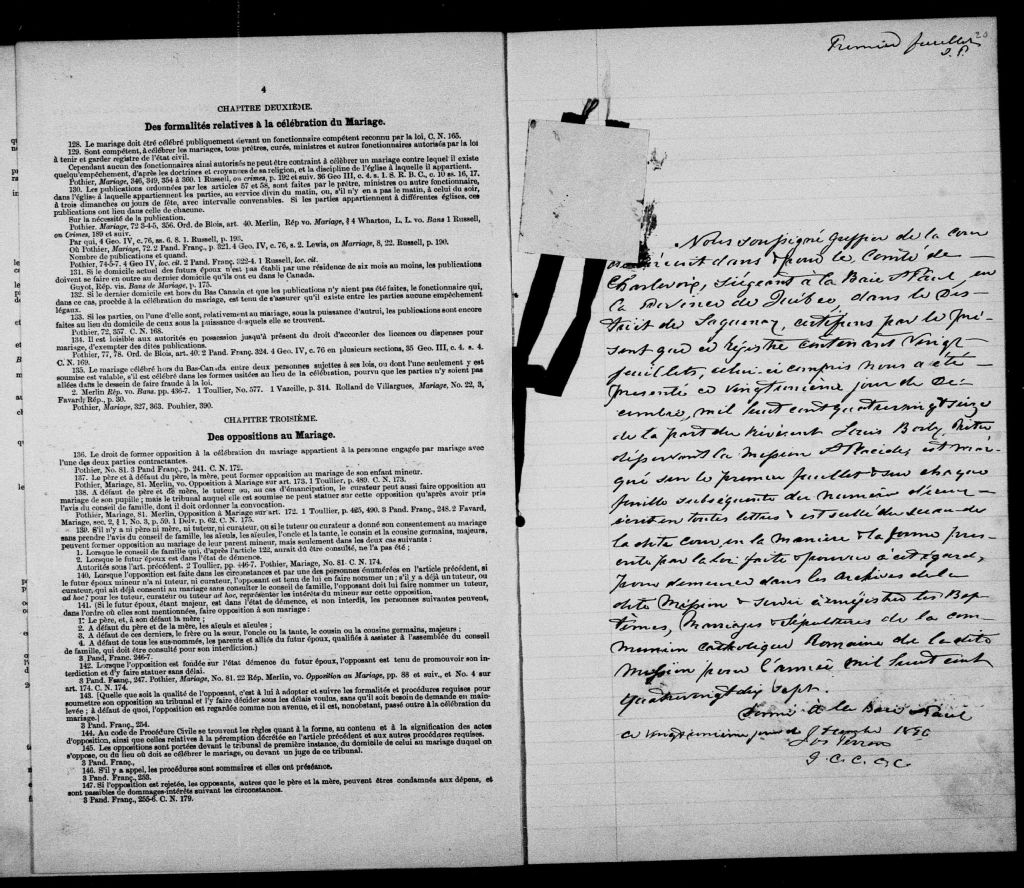 4
CHAPITRE DEUXIÈME.
Des formalités relatives à la célébration du Mariage.
128. Le mariage doit être célébré publiquement devant un fonctionnaire compétent reconnu par la loi, C. N. 165.
129. Sont compétent, à célébrer les mariages, tous prêtres, curés, ministres et autres fonctionnaires autorisés par la loi
à tenir et garder registre de l'état civil.
Cependant aucun des fonctionnaires ainsi autorisés ne peut être contraint à célèbrer un mariage contre lequel il existe
quelqu'empêchement, d'après les doctrines et croyances de sa religion, et la discipline de l'église à laquelle il appartient.
Pothier, Mariage, 346, 349, 354 à 360. 1 Russell, on crimes, p. 192 et suiv. 36 Geo III, c. 4. s. 1. S. R. B. C., c. 10 ss. 16, 17.
130. Les publications ordonnées par les articles 57 et 58, sont faites par le prêtre, ministre ou autre fonctionnaire,
dans l'église à laquelle appartiennent les parties, au service divin du matin, ou, s'il n'y en a pas le matin, à celui du soir,
à trois dimanches ou jours de fête, avec intervalle convenables. Si les parties appartiennent à différentes églises, ces
publications ont lieu dans celle de chacune.
Sur la nécessité de la publication.
Pothier. Mariage, 72 3-4-5, 356. Ord. de Blois, art. 40. Merlin, Rép vo. Mariage, § 4 Wharton, L, L. vo. Bans 1 Russell,
on Crimes, 189 et suiv.
Par qui, 4 Geo. IV, c. 76, ss. 6. 8. 1. Russell, p. 193.
Oh Pothier, Mariage, 72. 2 Pand. Franç., p. 321. 4 Geo. IV, c. 76, s. 2. Lewis, on Marriage, 8, 22. Russell, p. 190.
Nombre de publications et quand.
Pothier, 74-5-7. 4 Geo IV, loc. cit. 2 Pand. Franç. 322-4. 1 Russell, loc. cit.
131. Si le domicile actuel des futurs époux n'est pas établi par une résidence de six mois au moins, les publications
doivent se faire en outre au dernier domicile qu'ils ont eu dans le Canada.
Guyot, Rép. vis. Bans de Mariage, p. 175.
132. Si le dernier domicile est hors du Bas Canada et que les publications n'y aient pas été faites, le fonctionnaire qui,
dans ce cas, procède à la célébration du mariage, est tenu de s'assurer qu'il existe entre les parties aucune empêchement
légaux.
133. Si les parties, ou l'une d'elle sont, relativement au mariage, sous la puissance d'autrui, les publications sont encore
faites au lieu du domicile de ceux sous la puissance desquels elle se trouvent.
Pothier, 72, 357. C. N. 168.
134. Il est loisible aux autorités en possession jusqu'à présent du droit d'accorder des licences ou dispenses pour
mariage, d'exempter des dites publications.
Pothier, 77, 78. Ord. de Blois, art. 40. 2 Pand. Franç. 324. 4 Geo. IV, c. 76 en plusieurs sections, 35 Geo. III, c. 4. s. 4.
C. N. 169.
135. Le mariage célébré hors du Bas-Canada entre deux personnes sujettes à ses lois, ou dont l'une seulement y est
soumise est valable, s'il est célébré dans les formes usitées au lieu de la célébration, pourvu que les parties n'y soient pas
allées dans le dessein de faire fraude à la loi.
2. Merlin Rép. vo. Bans. pp. 436-7. 1 Toullier, No. 577. 1 Vazeille, p. 314. Rolland de Villargues, Mariage, No. 22, 3,
Favard, Rép., p. 30.
Pothier, Mariage, 327, 363. Pouhier, 390.
CHAPITRE TROISIÈME.
Des oppositions au Mariage.
136. Le droit de former opposition à la célébration du mariage appartient à la personne engagée par mariage avec
l'une des deux parties contractantes.
Pothier, No. 81. 3 Pand Franç., p. 241. C. N. 172.
137. Le père et à défaut du père, la mère, peut former opposition au mariage de son enfant mineur.
Pothier, Mariage, 81. Merlin, vo. Opposition à Mariage sur art. 173. 1 Toullier, p. 489. C. N. 173.
138. A défaut de père et de mère, le tuteur ou, au cas d'émancipation, le curateur peut aussi faire opposition au
mariage de son pupille ; mais le tribunal auquel elle est soumise ne peut statuer sur cette opposition qu'après avoir pris
l'avis du conseil de famille, dont il doit ordonner la convocation.
Pothier, Mariage, 81. Merlin, Opposition à Mariage sur art. 172. 1 Toullier, p. 425, 490. 3 Pand. Franç., 248. 2 Favard,
Mariage, sec. 2, § 1, No. 3, p. 59. 1 Delv. p. 62. C. N. 175.
139. S'il n'y a ni père ni mère, ni tuteur, ni curateur, ou si le tuteur ou curateur a donné son consentement au mariage
sans prendre l'avis du conseil de famille, les aïeuls, les aïeules, l'oncle et la tante, le cousin et la cousine germains, majeurs,
peuvent former opposition au mariage de leur parent mineur, mais seulement dans les deux cas suivants :
1. Lorsque le conseil de famille qui, d'après l'article 122, aurait dû être consulté, ne l'a pas été ;
2. Lorsque le futur époux est dans l'état de démence.
Autorités sous l'art. précédent. 2 Toullier, pp. 446-7. Pothier, Mariage, No. 81. C. N. 174.
140. Lorsque l'opposition est faite dans les circonstances et par une des personnes énumérées en l'article précédent, si
le futur époux mineur n'a ni tuteur, ni curateur, l'opposant est tenu de lui en faire nommer un ; s'il y a déjà un tuteur, ou
curateur, qui ait déjà consenti au mariage sans consulter le conseil de famille, l'opposant doit lui faire nommer un tuteur,
ad hoc ; pour les tuteur, curateur ou tuteur ad hoc, représenter les intérêts du mineur sur cette opposition.
141. (Si le futur époux, étant majeur, est dans l'état de démence, et non interdit, les personnes suivantes peuvent,
dans l'ordre ou elles sont mentionnées, faire opposition à son mariage :
1. Le père, et, à son défaut la mère ;
2. A défaut du père et de la mère, les aïeuls et aïeules ;
3. A défaut de ces derniers, le frère ou la sœur, l'oncle ou la tante, le cousin ou la cousine germains, majeurs ;
4. A défaut de tous les sus-nommés, les parents et alliés du futur époux, qualifiés à assister à l'assemblée du conseil
de famille, qui doit être consulté pour son interdiction.)
3 Pand, Franc. 246-7.
142. Lorsque l'opposition est fondée sur l'état démence du futur époux, l'opposant est tenu de promouvoir son in-
terdiction et d'y faire statuer sans délai.
3 Pand. Franç., 247. Pothier, Mariage, No. 81. 22 Rép. Merlin, vo. Opposition au Mariage, pp. 88 et suiv., et No. 4 sur
art. 174. C. N. 174.
143. [Quelle que soit la qualité de l'opposant, c'est à lui à adopter et suivre les formalités et procédures requises pour
soumettre son opposition au tribunal et l'y faire décider sous les délais voulus, sans qu'il soit besoin de demande en main-
levée ; à défaut de quoi, l'opposition est regardée comme non avenue, et il est, nonobstant, passé outre à la célébration du
mariage.]
3 Pand. Franç., 254.
144. Au code de Procédure Civile se trouvent les règles quant à la forme, au contenu et à la signification des actes
d'opposition, ainsi que celles relatives à la péremption décrétée en l'article précédent et aux autres procédures requises.
145. Les oppositions sont portées devant le tribunal de première instance, du domicile de celui au mariage duquel on
s'oppose, ou du lieu où doit se célébrer le mariage, ou devant un juge de ce tribunal.
3 Pand. Franç.,
146. S'il y a appel, les procédures sont sommaires et elles ont préséance.
3 Pand. Franç., 253.
147. Si l'opposition est rejetée, les opposants, autres que le père et la mère, peuvent être condamnés aux dépens, et
sont passibles de dommages-intérêts suivant les circonstances.
3 Pand. Franç., 255-6. C. N. 179.
20
Premier feuillet
Nous soussigné greffier de la cour
dans & pour le Comté de
Charlevoix, siégeant à la Baie St Paul, en
la Province de Québec, dans le Dis-
trict de Saguenay, certifions par le pré-
sent que ce régistre contenant vingt
feuillets, celui-ci compris nous a été
présenté ce vingtroisième jour de Dé-
cembre, mil huit cent quatrevingt seize
de la part du Révérend Louis Boily, Prêtre
déservant la Mission St Placide, est mar-
qué sur le premier feuillet & sur chaque
feuille subséquente du numéro d'icelle
écrit en toutes lettres & est scellé du sceau de
la dite cour, en la manière & la forme pres-
crite par la loi faite & pourvue à cet égard,
pour demeurer dans les archives de la
dite Mission & servir à enrégistrer les Bap-
têmes, Mariages & sépultures de la com-
munion catholique Romaine de la dite
Mission pour l'année mil huit cent
quatrevingt dix sept.
Donné à la Baie St Paul
ce vingtroisième jour de Décembre 1896
Perron
G. C. C. C. C.